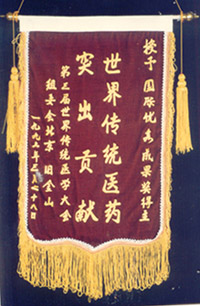 授予国际优秀成果奖得主
世界传统医药
突出贡献
第三届世界传统医学大会
组委会北京 旧金山
一九九 年 月 八日